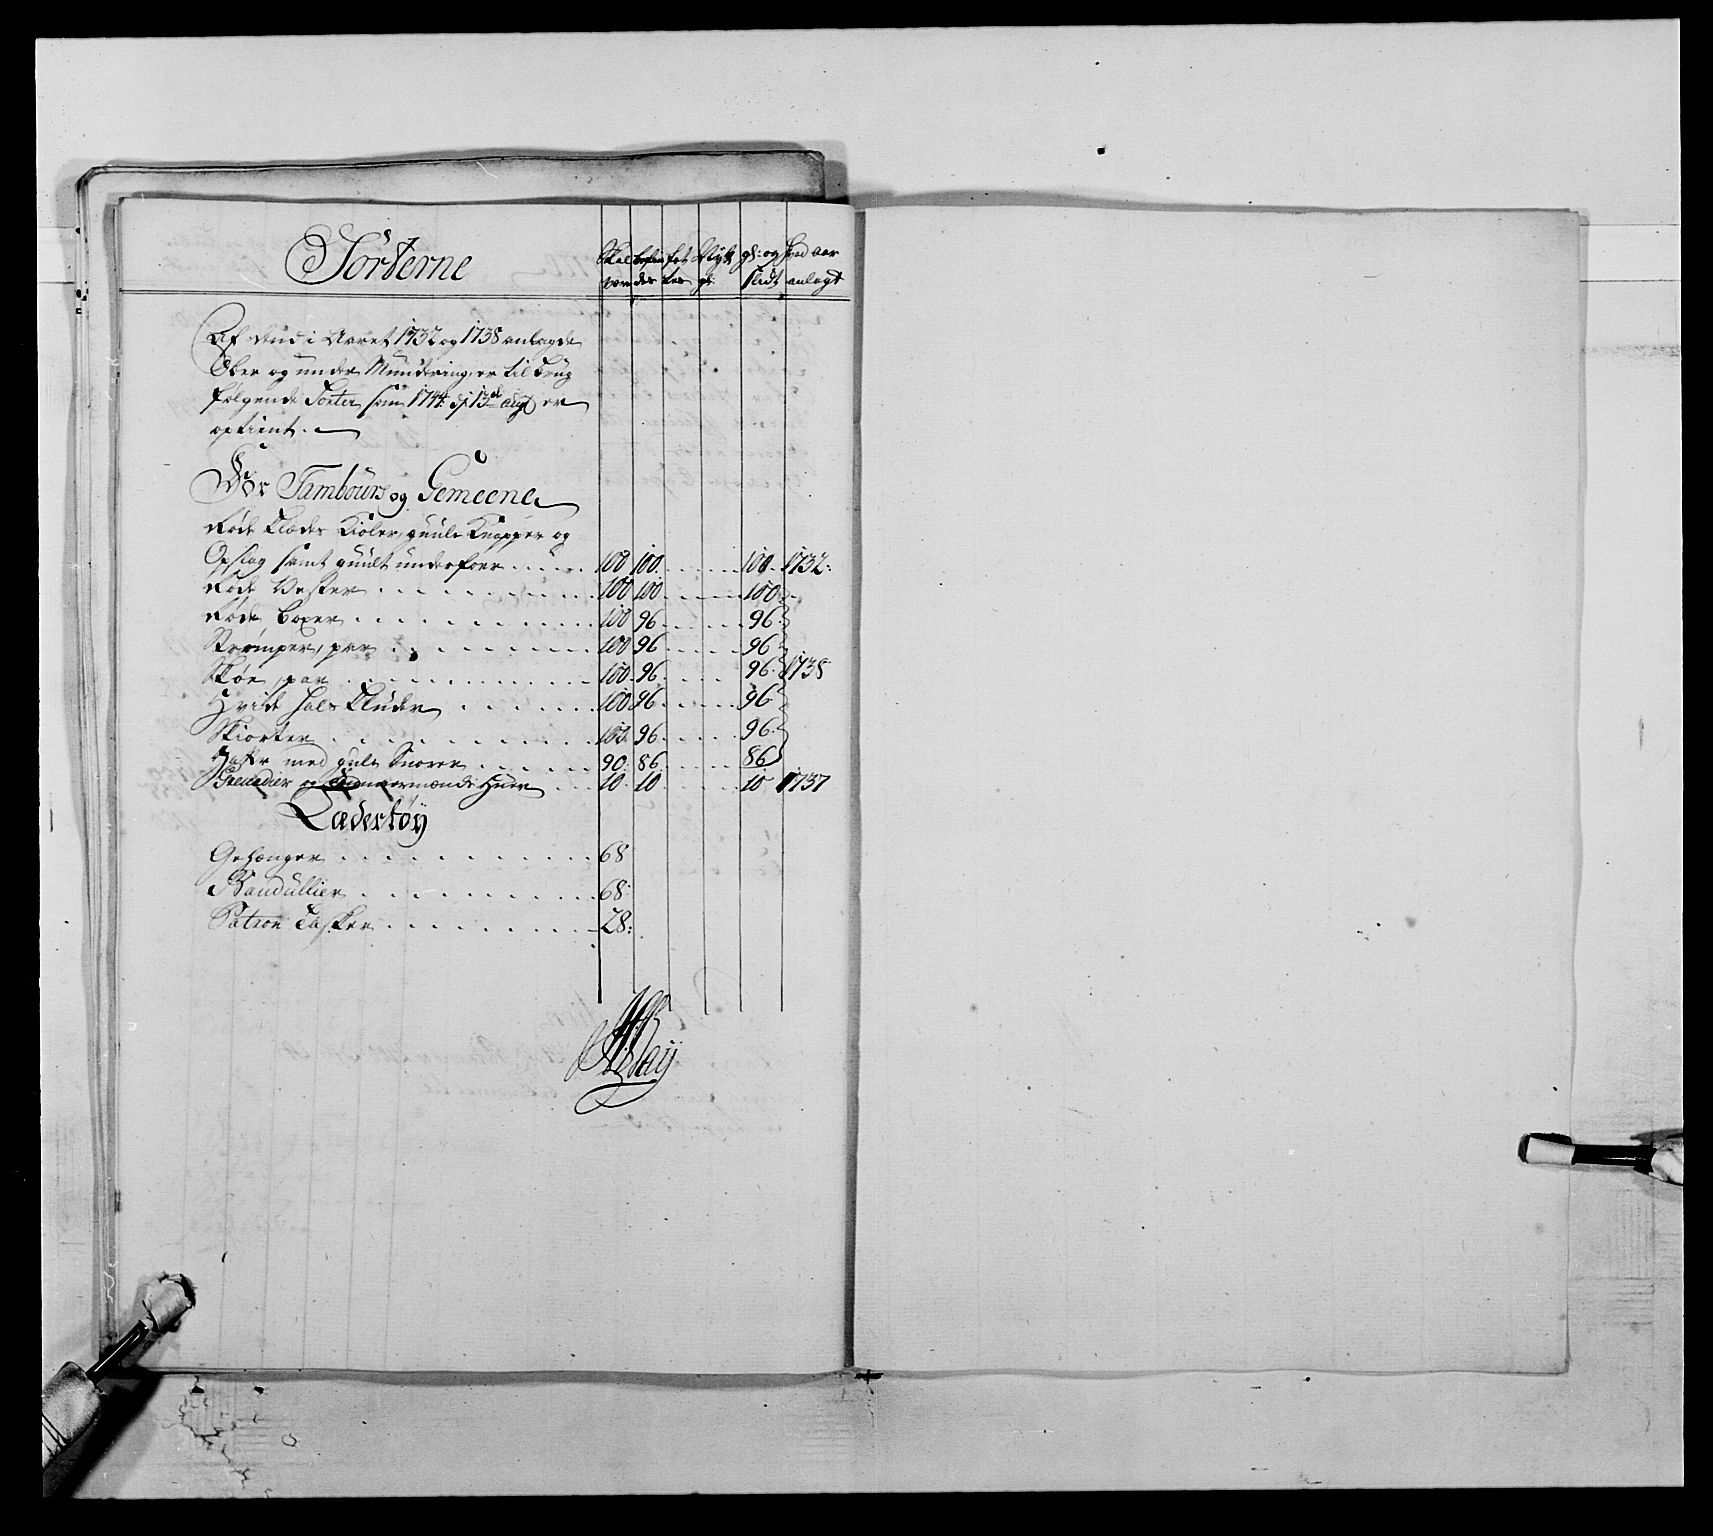 Sorterne
Skal være | befindes | fattes | Nÿtt gl: | gl: og slidt | Hvad aar anlagt
Af dend i Aaret 1732 og 1738 anlagde
Ober og under Mundering, er til brug
følgende Sorter som 1744 d: 13de Aug er
eftient.
For Tambours og Gemeene
Røde Klædes Kioler, guule Knapper og
Opslag samt guult underfoer . . . 100 100. . . . 100. 1732:
Røde Vester . . . 100 100 . . . 100.
Røde boxer . . . 100 96 . . . 96.
Strømper, par . . . 100 96 . . . 96
Skoe, par . . . 100. 96. . . . 96. 1738
Hvide Hals Klude . . . 100 96 . . . 96
Skiorter . . . 100. 96. . . . 96.
Hatte med gule Snorer . . . 90. 86. . . . 86
Grenadier og Tømmermænds Huer . . . 10. 10 . . . 10 1737
Lædertøÿ
Gehænger . . . 68
Bandullier . . . 68:
Patron Tasker . . . 28: